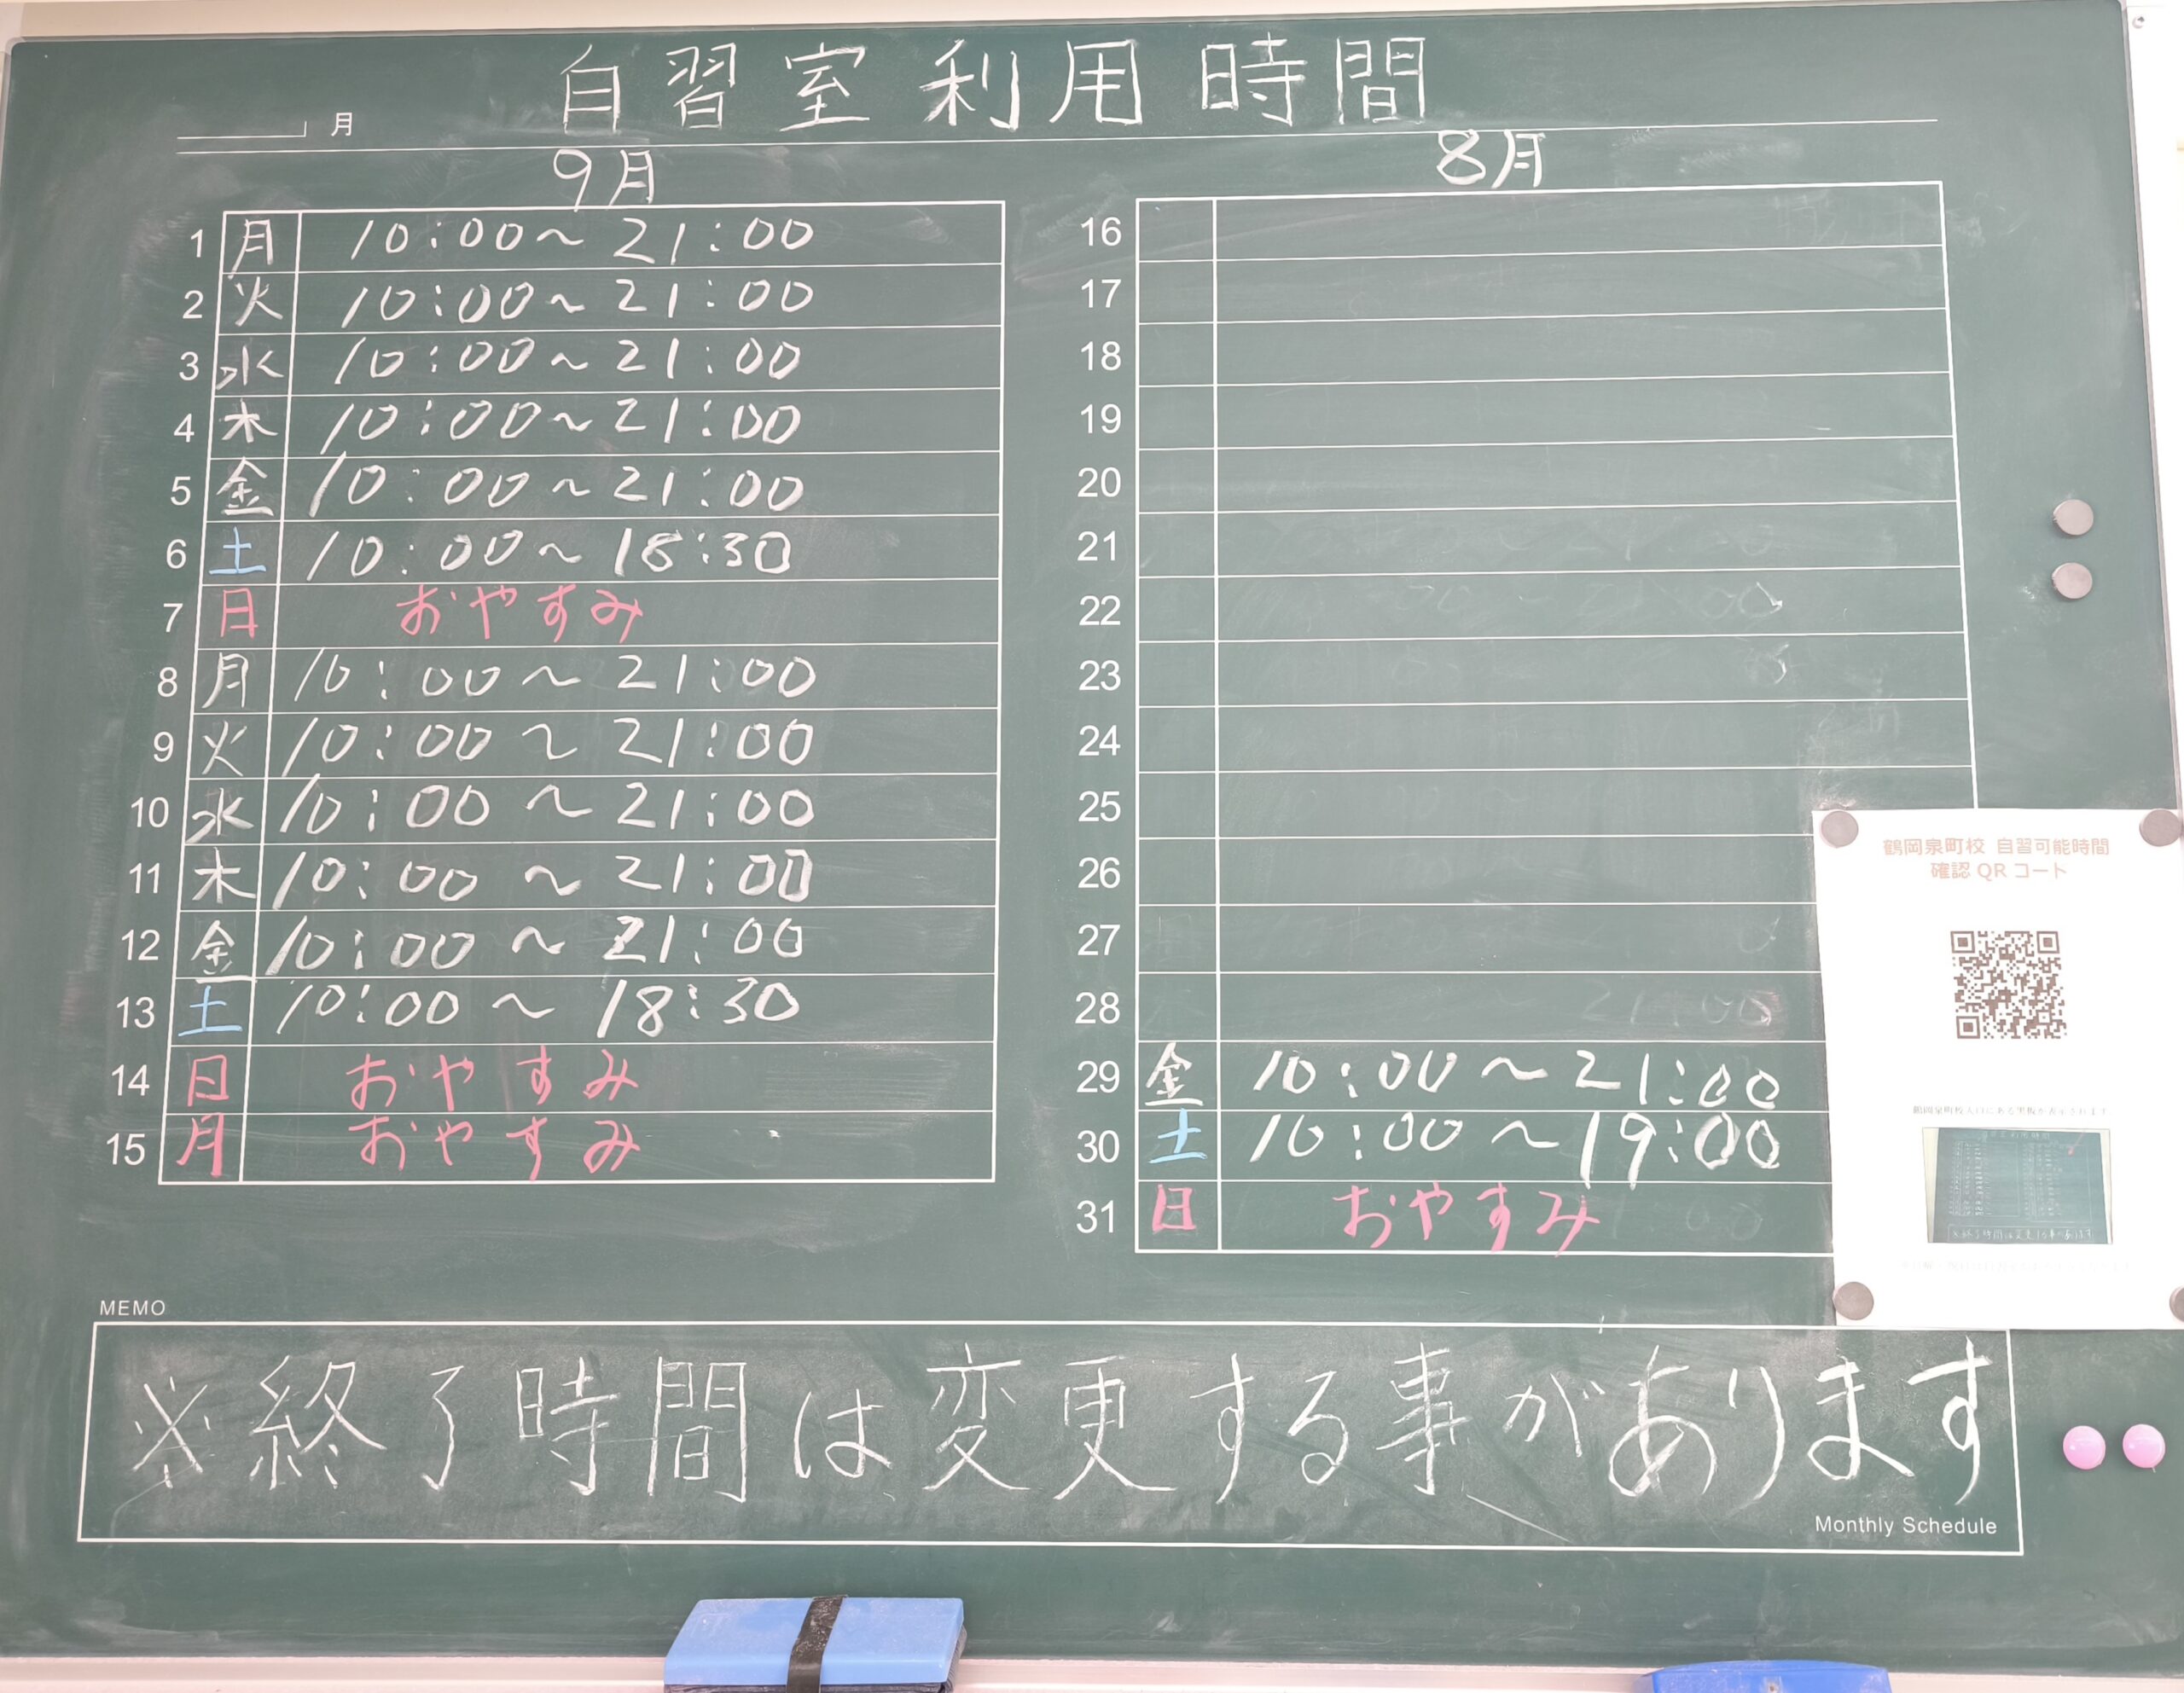 自習室利用時間
月
9月
1 月 10:00~21:00
2 火 10:00~21:00
3 水 10:00~21:00
4 木 10:00~21:00
5 金 10:00~21:00
6 土 10:00~18:30
7 日 おやすみ
8 月 10:00~21:00
9 火 10:00~21:00
10 水 10:00~21:00
11 木 10:00~21:00
12 金 10:00~21:00
13 土 10:00~18:30
14 日 おやすみ
15 月 おやすみ
8月
16
17
18
19
20
21
22
23
24
25
26
27
28
29 金 10:00~21:00
30 土 10:00~19:00
31 日 おやすみ
鶴岡泉町校 自習可能時間
確認 QR コート
鶴岡泉町校入口にある黒板が表示されます
MEMO
※終了時間は変更する事があります
Monthly Schedule